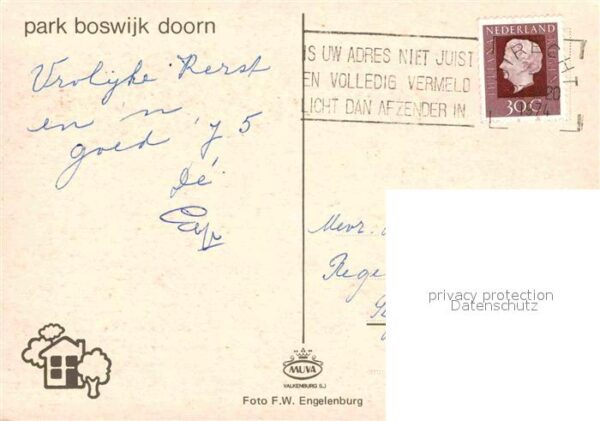 park boswijk doorn
Vrolijke Kerst
en 'n
goed '75
Dé
IS UW ADRES NIET JUIST
EN VOLLEDIG VERMELD
LICHT DAN AFZENDER IN
NEDERLAND
30c
1974
Mevr.
Rege
privacy protection
Datenschutz
MUVA
VALKENBURG
Foto F.W. Engelenburg